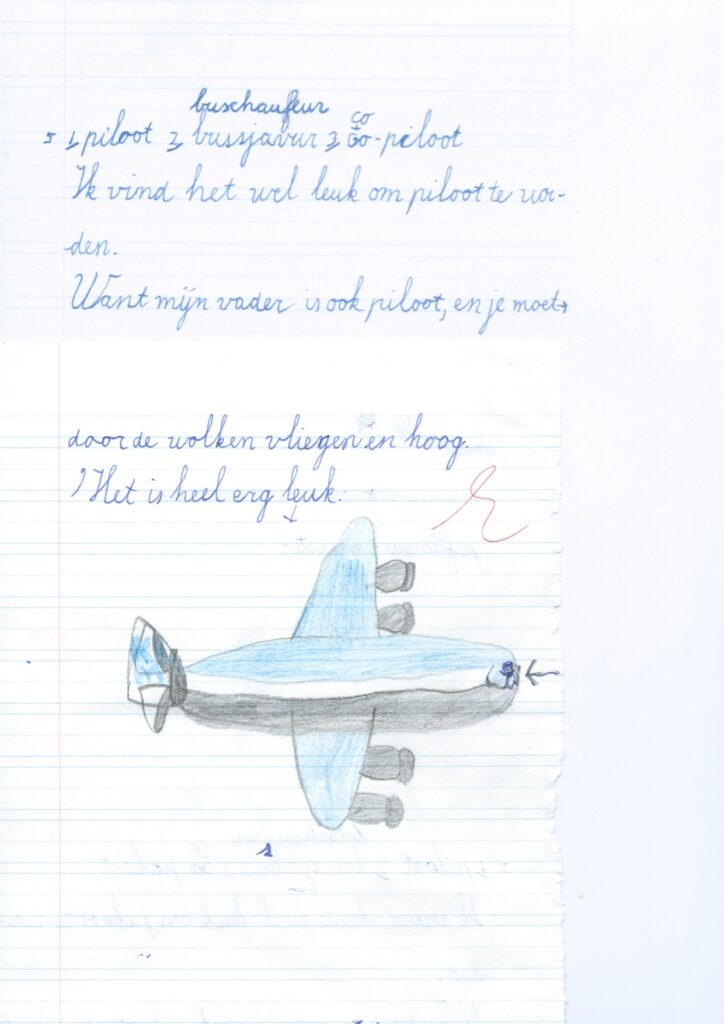 buschaufeur
5 1, piloot 2, bussjavur 3, co co-piloot
Ik vind het wel leuk om piloot te wor-
den.
Want mijn vader is ook piloot, en je moet→
door de wolken vliegen en hoog.
Het is heel erg leuk.